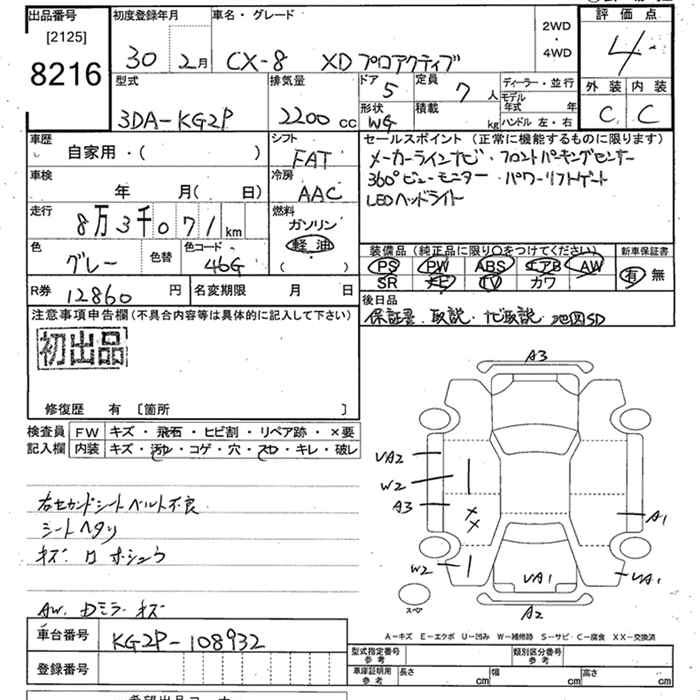 出品番号
[2125]
8216
初度登録年月
30 2月
車名・グレード
CX-8 XD プロアクティブ
2WD
・
4WD
評価点
4
外装 内装
C C
型式
3DA-KG2P
排気量
2200 cc
ドア 5
定員 7 人
形状 WG
積載 kg
ディーラー・並行
モデル年式 年
ハンドル 左・右
車歴
自家用・( )
シフト
FAT
セールスポイント (正常に機能するものに限ります)
メーカーラインナビ・フロントパーキングセンサー
360°ビューモニター・パワーリフトゲート
LEDヘッドライト
車検
年 月( 日)
冷房
AAC
走行
8万3千071 km
燃料
ガソリン
軽油
( )
色
グレー
色替
色コード
46G
装備品 (純正品に限り○をつけてください)
PS PW ABS エアB AW
SR ナビ TV カワ
新車保証書
有 無
R券 12860 円
名変期限 月 日
後日品
保証書、取説、ナビ取説、地図SD
注意事項申告欄 (不具合内容等は具体的に記入して下さい)
初出品
修復歴 有 [箇所 ]
検査員記入欄
FW キズ・飛石・ヒビ割・リペア跡・×要
内装 キズ・汚レ・コゲ・穴・スレ・キレ・破レ
右セカンドシートベルト不良
シートヘタリ
キズ ロ ホシュウ
AW. Dミラーキズ
A3
UA2
W2
A3
W2
A1
UA1
UA1
A2
スペア
A-キズ E-エクボ U-凹み W-補修跡 S-サビ・C-腐食 XX-交換済
車台番号 KG2P-108932
登録番号
型式指定番号 参考
類別区分番号 参考
車庫証明用 参考
長さ cm 幅 cm 高さ cm